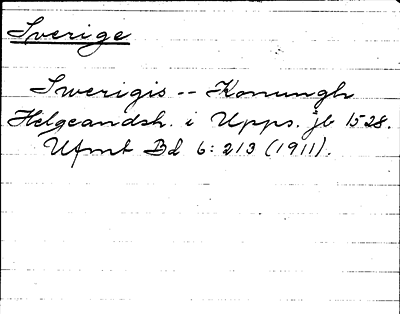 Sverige
Swerigis -- Konungh
Helgeandsh. i Upps. jb 1528.
Ufmt Bd 6: 213 (1911).